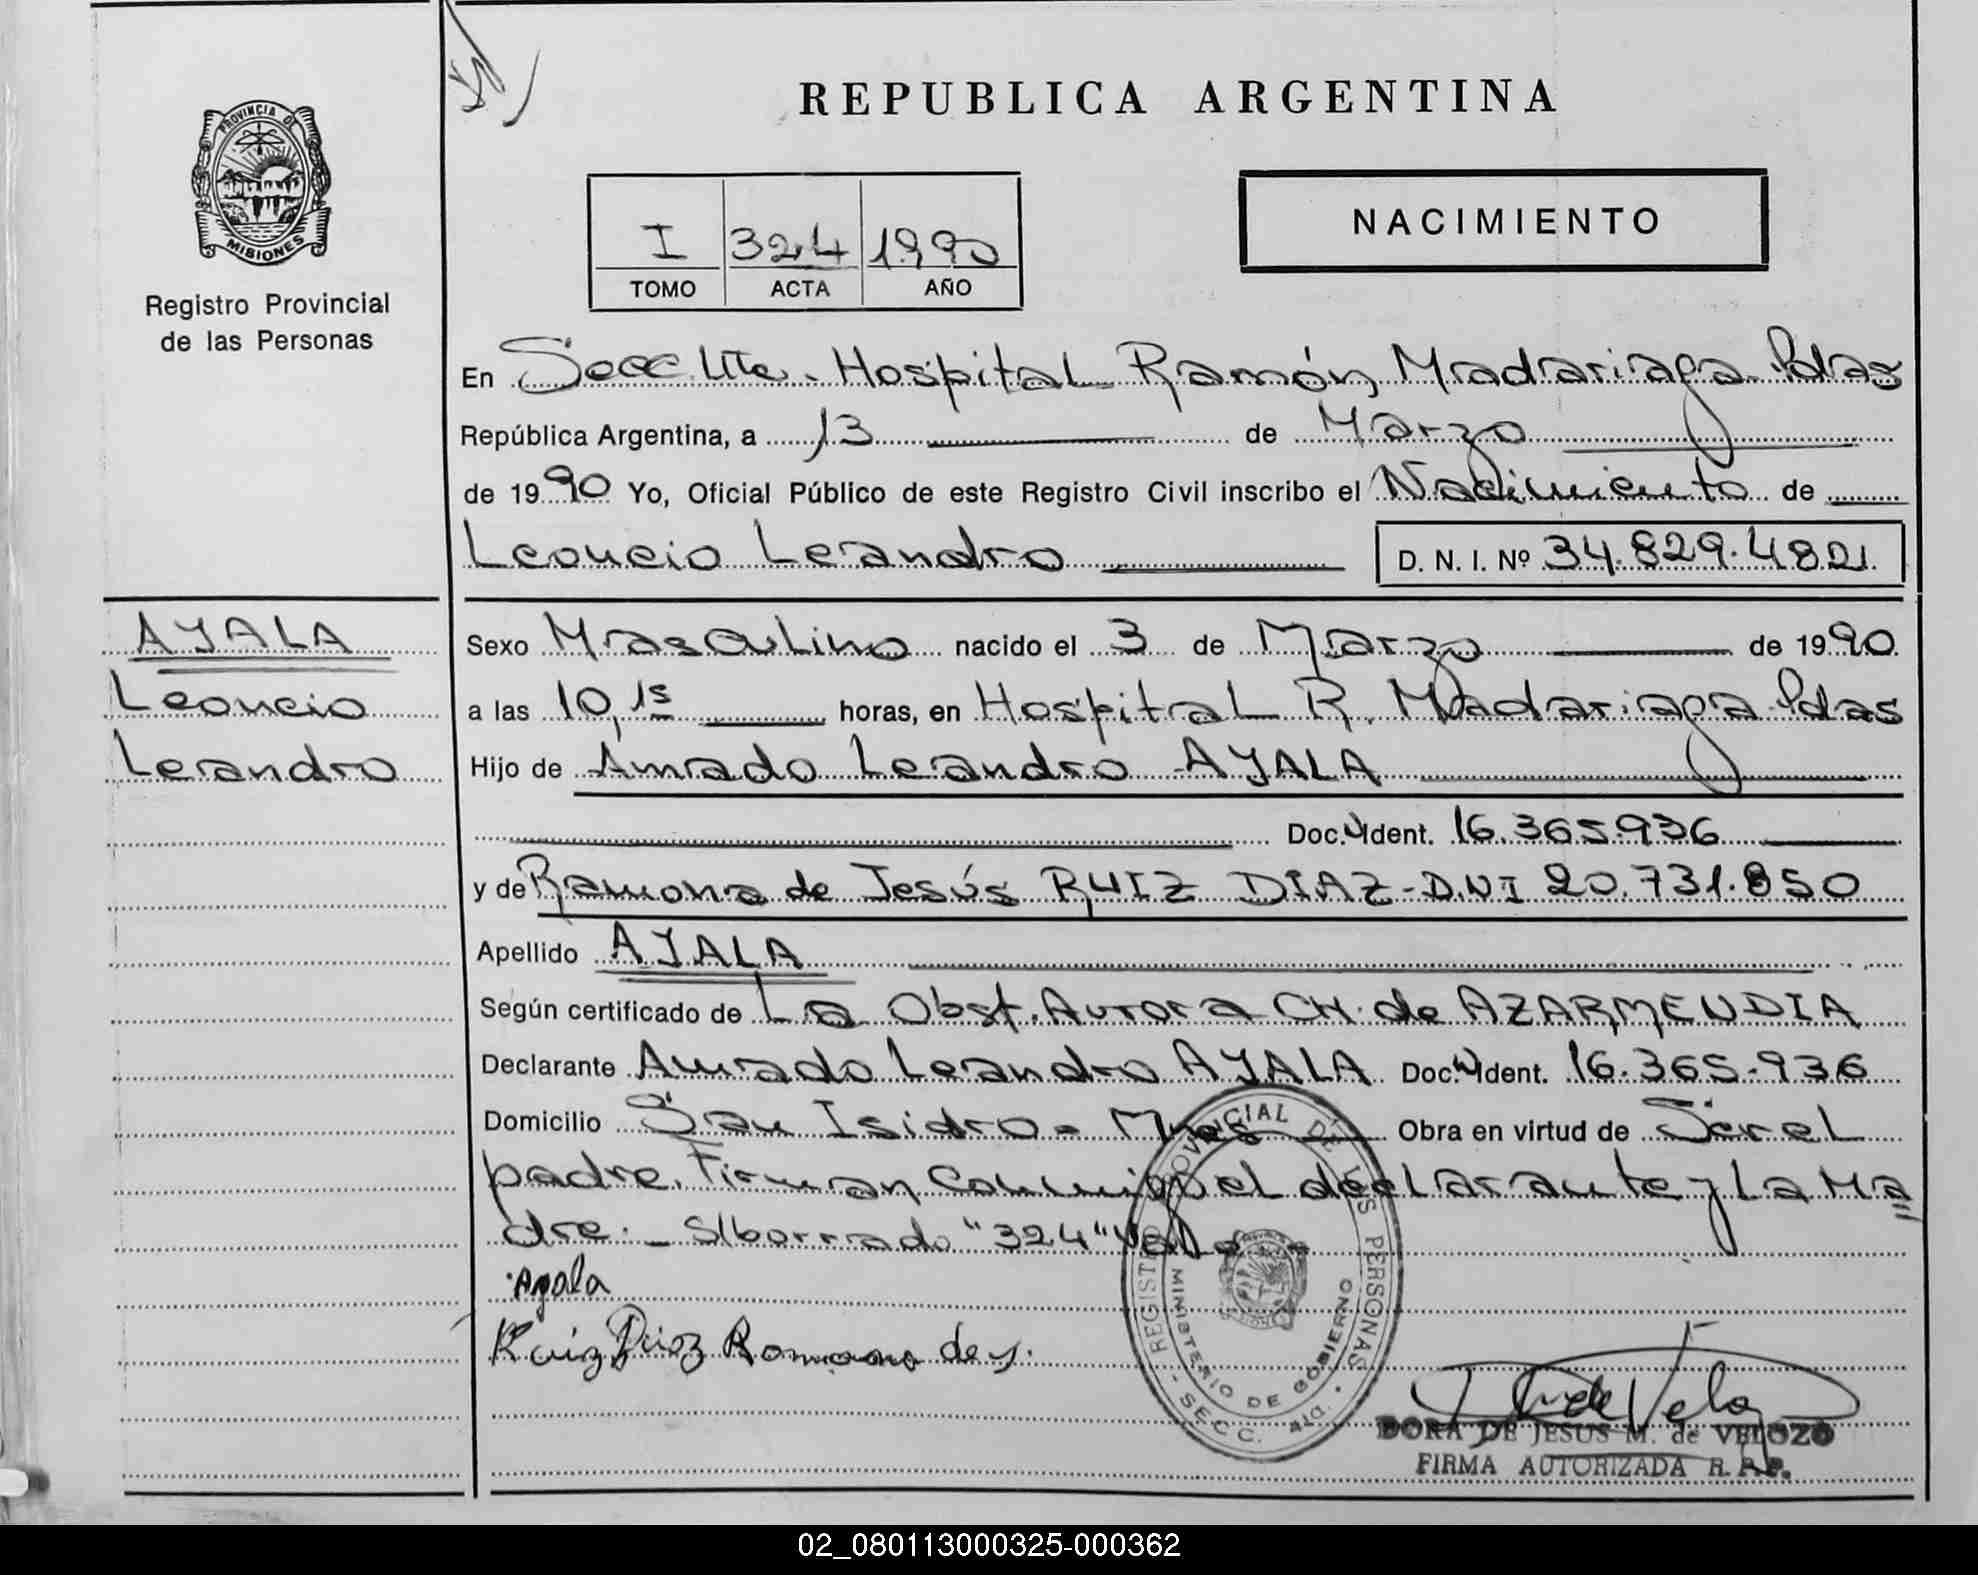 REPUBLICA ARGENTINA
PROVINCIA DE
MISIONES
Registro Provincial
de las Personas
I 324 1990
TOMO ACTA AÑO
NACIMIENTO
En Secc 4ta. Hospital Ramón Madariaga Pdas
República Argentina, a 13 de Marzo
de 1990 Yo, Oficial Público de este Registro Civil inscribo el Nacimiento de
Leoncio Leandro D. N. I. Nº 34.829.482
AYALA
Leoncio
Leandro
Sexo Masculino nacido el 3 de Marzo de 1990
a las 10,15 horas, en Hospital R. Madariaga Pdas
Hijo de Amado Leandro AYALA
Doc. Ident. 16.365.936
y de Ramona de Jesús RUIZ DIAZ - D.N.I 20.731.850
Apellido AYALA
Según certificado de La Obst. Aurora CH. de AZARMENDIA
Declarante Amado Leandro AYALA Doc. Ident. 16.365.936
Domicilio San Isidro - Mnes Obra en virtud de Ser el
padre. Firman conmigo el declarante y La Ma
dre. - S/borrado "324" Vale
Ayala
Ruiz Diaz Ramona de J.
REGISTRO PROVINCIAL DE LAS PERSONAS
MINISTERIO DE GOBIERNO
- SECC. 4ta. -
DORA DE JESUS M. de VELOZO
FIRMA AUTORIZADA R. P. P.
02_080113000325-000362